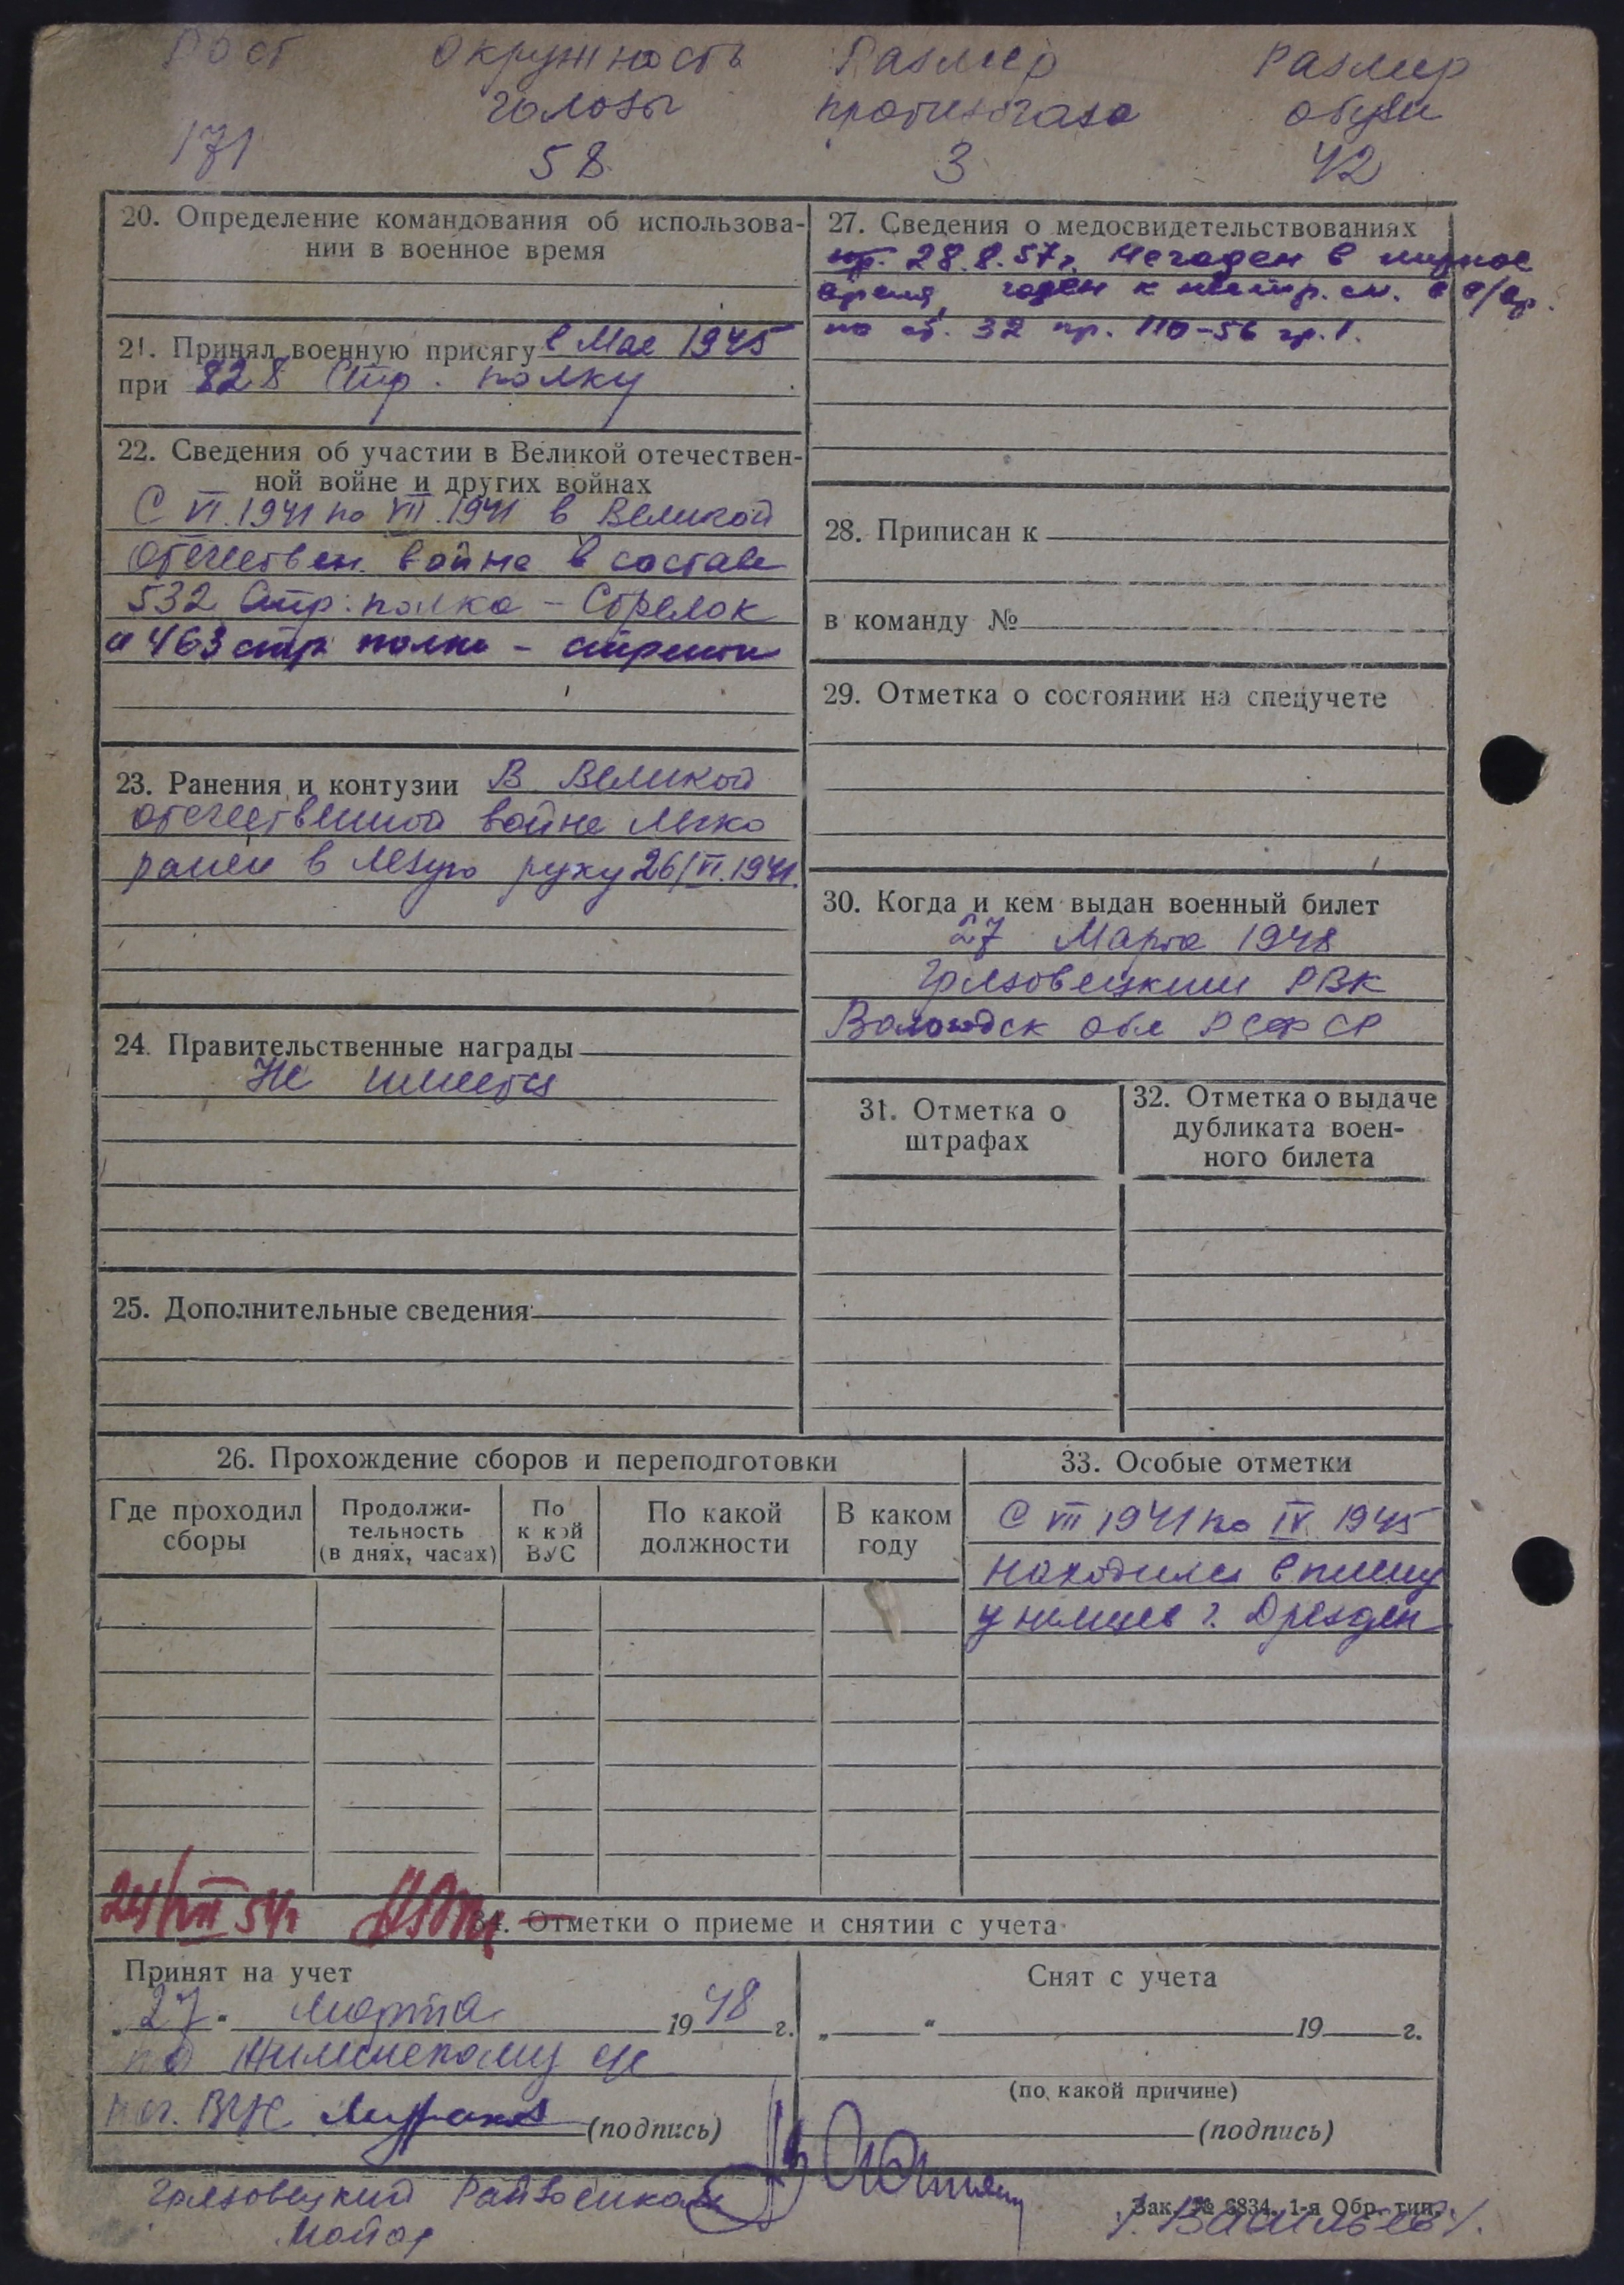 Рост Окружность Размер Размер
головы противогаза обуви
171 58 3 42
20. Определение командования об использова-
нии в военное время
21. Принял военную присягу в Мае 1945
при 828 Стр. полку
22. Сведения об участии в Великой отечествен-
ной войне и других войнах
С VI.1941 по VII.1941 в Великой
Отечествен. войне в составе
532 Стр: полка - Стрелок
и 463 стр. полка - стрелок
23. Ранения и контузии В Великой
отечественной войне легко
ранен в левую руку 26/VI.1941.
24. Правительственные награды
Не имеет
25. Дополнительные сведения:
27. Сведения о медосвидетельствованиях
28.8.57г. Негоден в мирное
время, годен к нестр. сл. в в/вр.
по ст. 32 пр. 110-56 гр. I.
28. Приписан к
в команду №
29. Отметка о состоянии на спецучете
30. Когда и кем выдан военный билет
27 Марта 1948
Грязовецким РВК
Вологодск обл РСФСР
31. Отметка о
штрафах
32. Отметка о выдаче
дубликата воен-
ного билета
26. Прохождение сборов и переподготовки
Где проходил
сборы
Продолжи-
тельность
(в днях, часах)
По
к кой
ВУС
По какой
должности
В каком
году
33. Особые отметки
С VII 1941 по IV 1945
находился в плену
у немцев г. Дрезден
34. Отметки о приеме и снятии с учета
Принят на учет
„27“ марта 1948 г.
нач. ВУС (подпись)
Снят с учета
„ “ 19 г.
(по какой причине)
(подпись)
Грязовецкий Райвоенком
Майор
/. Васильев/.
Зак. № 6834. 1-я Обр. тип.